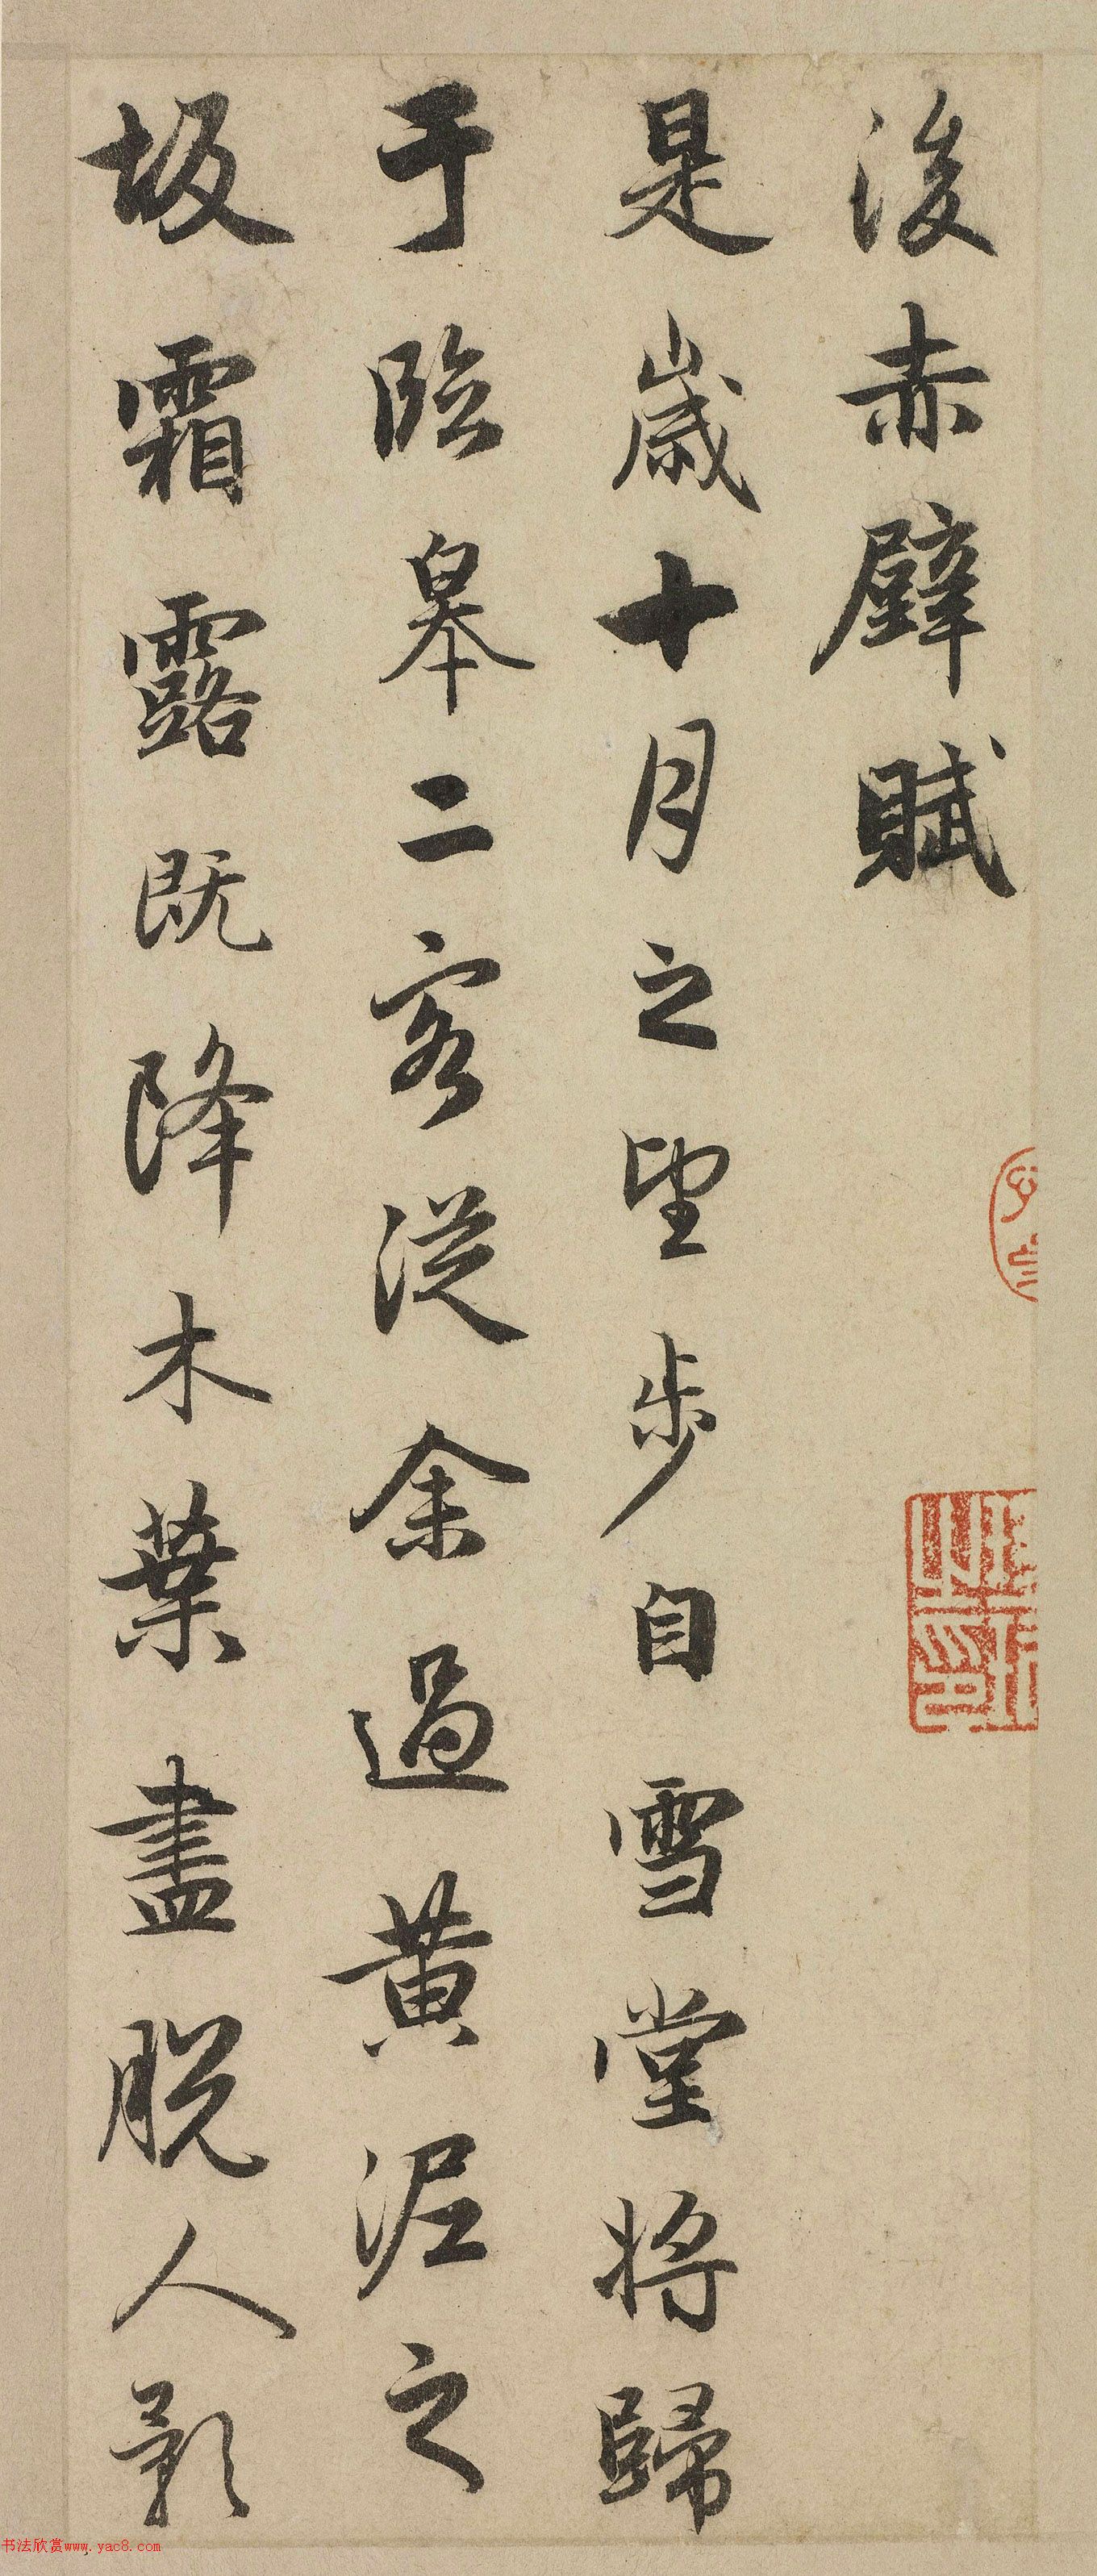 後赤壁賦
是歲十月之望步自雪堂將歸
于臨皋二客從余過黃泥之
坂霜露既降木葉盡脫人影
书法欣赏www.yac8.com